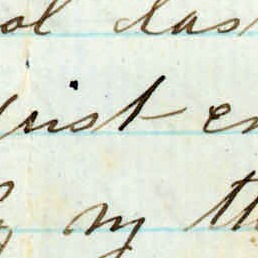 ol das
rist en
my th